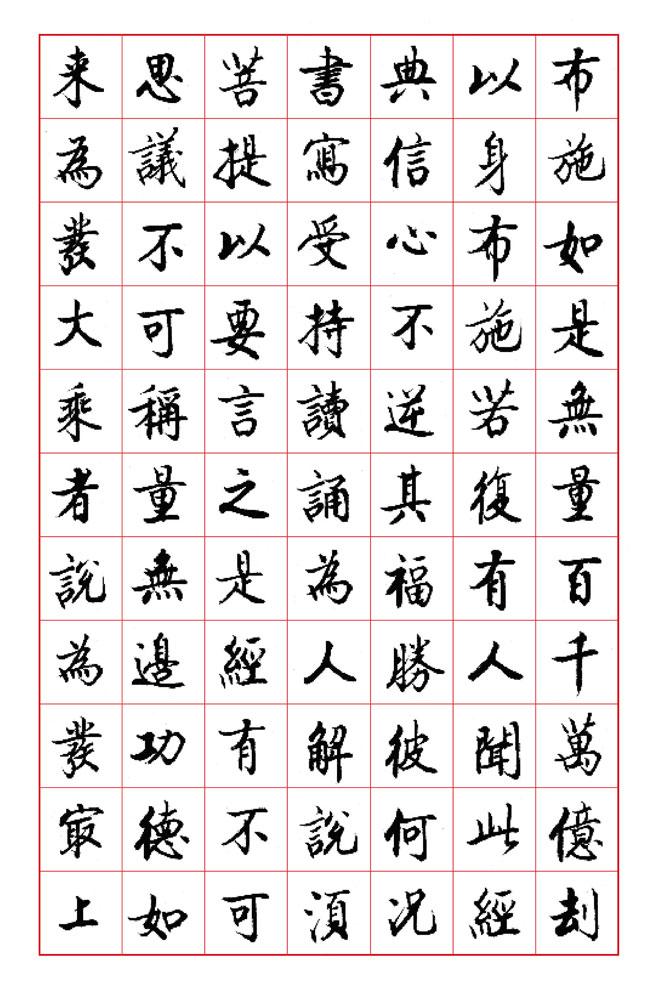 布施如是無量百千萬億刦
以身布施若復有人聞此經
典信心不逆其福勝彼何况
書寫受持讀誦為人解說湏
菩提以要言之是經有不可
思議不可稱量無邊功德如
来為發大乘者說為發冣上